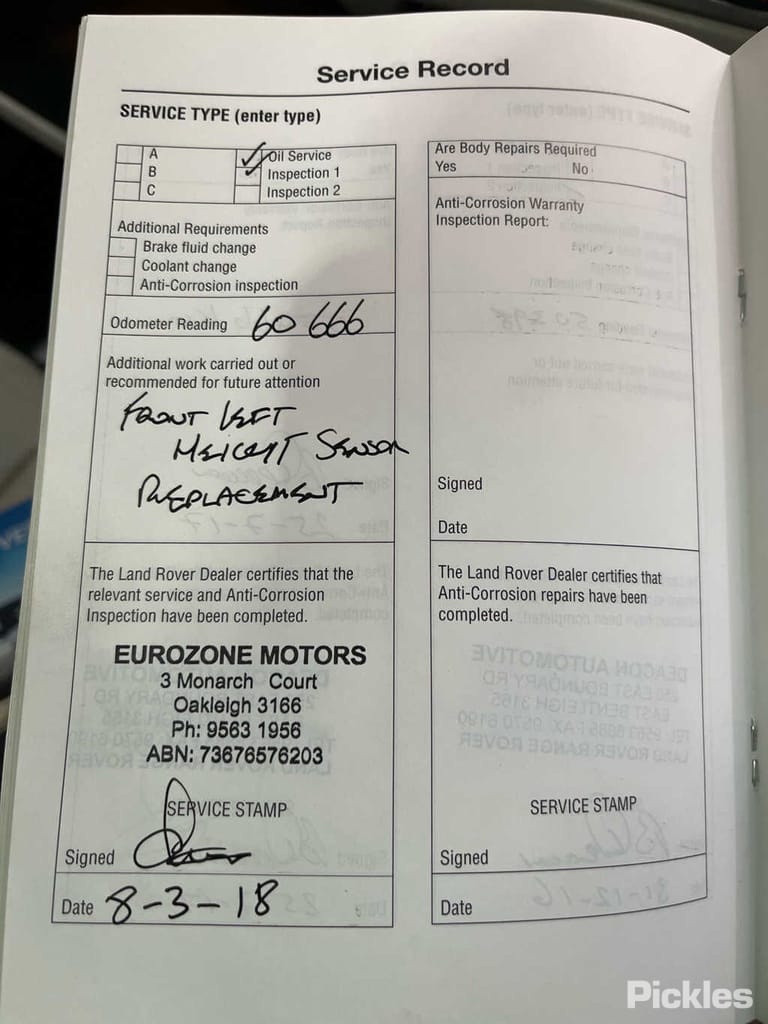 Service Record
SERVICE TYPE (enter type)
A
B
C
Oil Service
Inspection 1
Inspection 2
Additional Requirements
Brake fluid change
Coolant change
Anti-Corrosion inspection
Odometer Reading 60 666
Additional work carried out or
recommended for future attention
FRONT LEFT
HEIGHT SENSOR
REPLACEMENT
The Land Rover Dealer certifies that the
relevant service and Anti-Corrosion
Inspection have been completed.
EUROZONE MOTORS
3 Monarch Court
Oakleigh 3166
Ph: 9563 1956
ABN: 73676576203
SERVICE STAMP
Signed
Date 8-3-18
Are Body Repairs Required
Yes No
Anti-Corrosion Warranty
Inspection Report:
Signed
Date
The Land Rover Dealer certifies that
Anti-Corrosion repairs have been
completed.
SERVICE STAMP
Signed
Date
Pickles